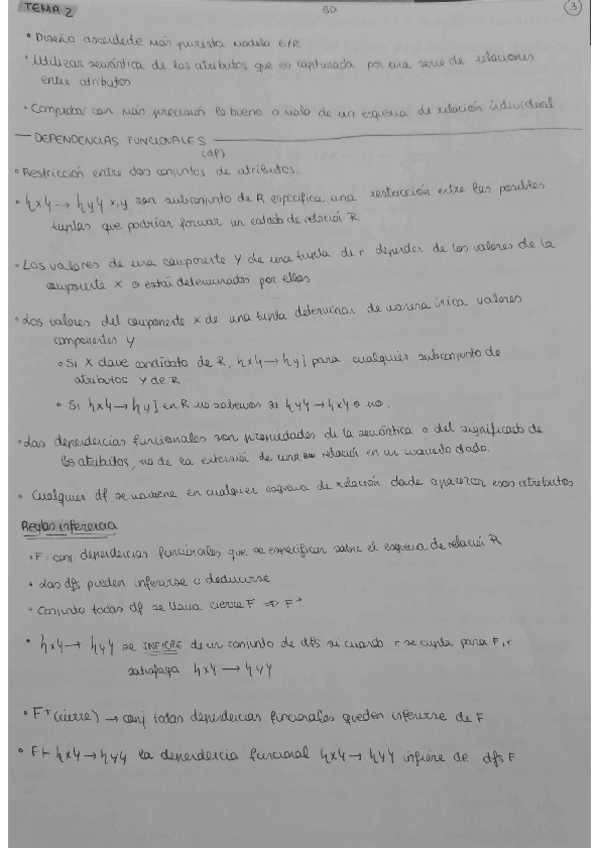 TEMA 2 BD 3
• Diseño ascendente más purista modelo E/R
• Utilizar semántica de los atributos que es capturada por una serie de relaciones
entre atributos
• Comprobar con más precisión lo bueno o malo de un esquema de relación individual
DEPENDENCIAS FUNCIONALES
(df)
• Restricción entre dos conjuntos de atributos.
• {x} → {y} x,y son subconjunto de R especifica una restricción entre las posibles
tuplas que podrían formar un estado de relació R
• Los valores de una componente Y de una tupla de r depender de los valores de la
componente X o está determinados por ellos
• Los valores del componente x de una tupla determinar de manera única valores
componentes Y
• Si X clave candidato de R, {x} → {y} para cualquier subconjunto de
atributos Y de R
• Si {x} → {y} en R no sabemos si {y} → {x} o no.
• Las dependencias funcionales son propiedades de la semántica o del significado de
los atributos, no de la extensión de una relación en un momento dado.
• Cualquier df se mantiene en cualquier esquema de relación donde aparezcan esos atributos
Reglas inferencia
• F: conj. dependencias funcionales que se especificar sobre el esquema de relació R
• Las dfs pueden inferirse o deducirse
• Conjunto todas df se llama cierre F ⇒ F⁺
• {x} → {y} se INFIERE de un conjunto de dfs si cuando r se cumpla para F, r
satisfaga {x} → {y}
• F⁺ (cierre) → conj todas dependencias funcionales pueden inferirse de F
• F ⊢ {x} → {y} la dependencia funcional {x} → {y} infiere de dfs F